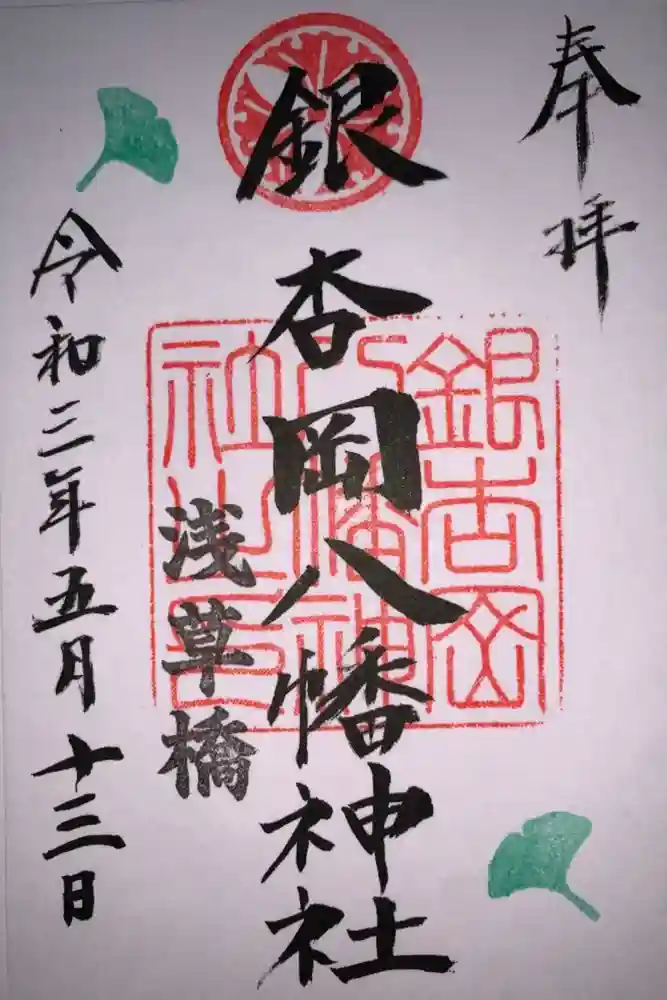 奉拝
銀杏岡八幡神社
銀杏岡八幡神社之印
浅草橋
令和三年五月十三日